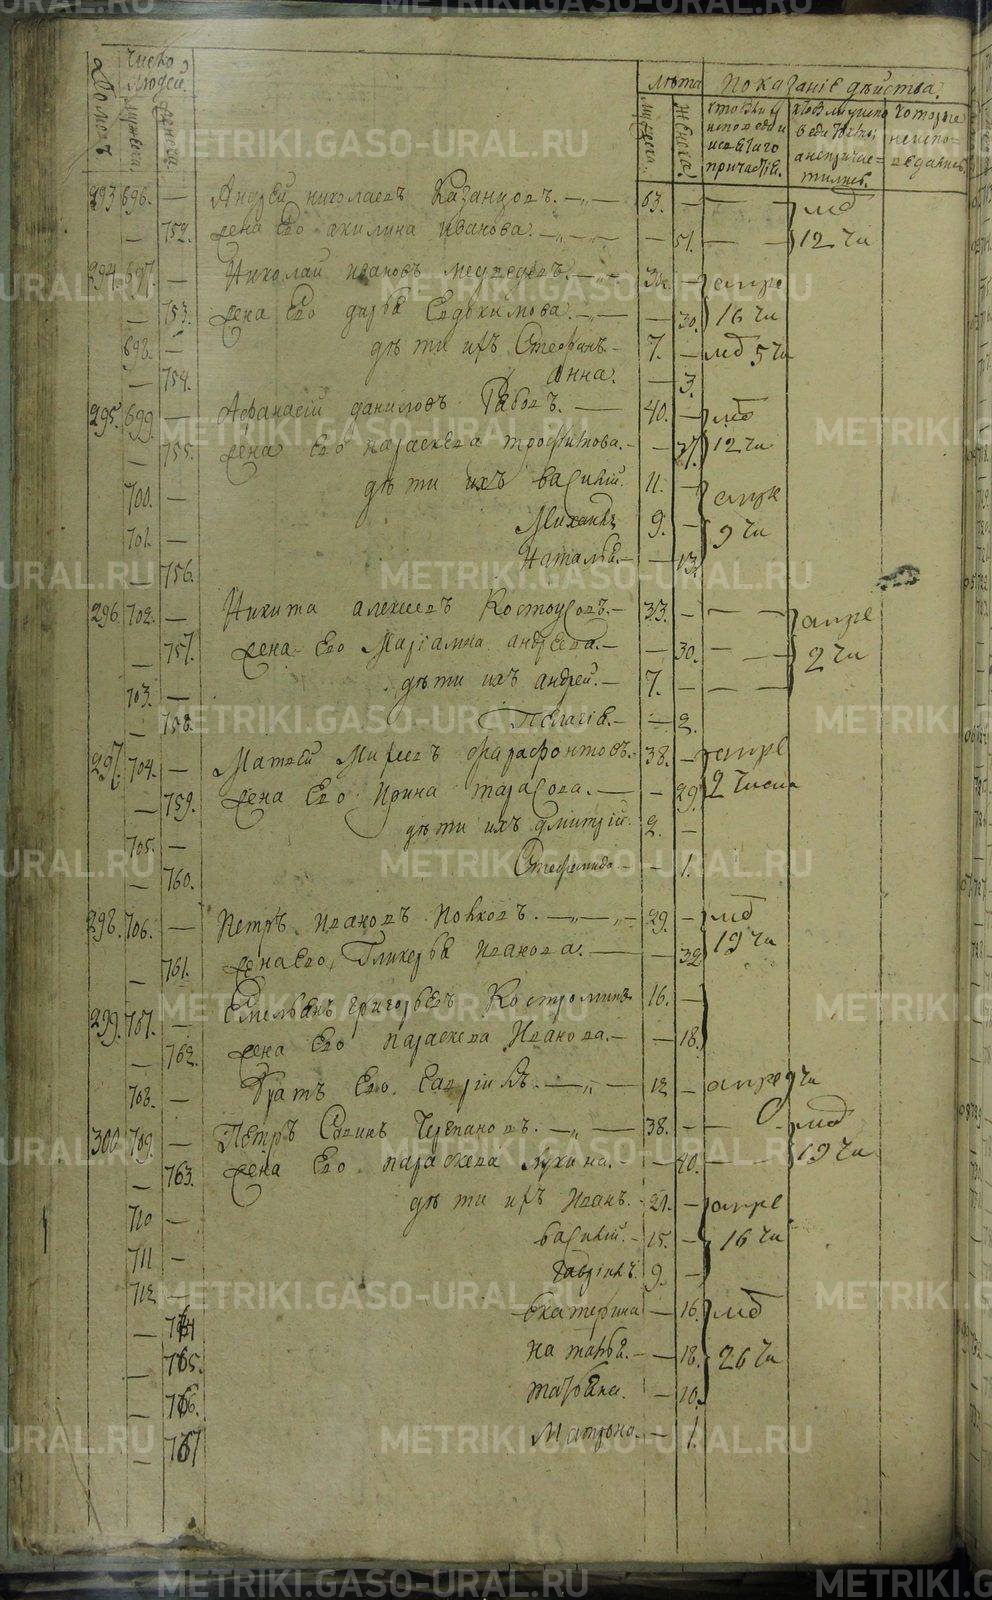 Число людей
Домовъ мужеска женска лѣта Показаніе дѣиства
мужеска женска кто были у исповеди и святаго причастія которые неиспо=ведались
293 696. — Андрей николаевъ Казанцовъ. 63. — — мд
— 752. жена Его акилина иванова. — 51. — 12 чи
294 697. — Николай ивановъ медведевъ. — апре
— 753. жена Его дарья Евдокимова. — 30. 16 чи
698. — дѣти ихъ Стефанъ 7. — мд 5 чи
— 754. Анна. — 3.
295. 699. — Афанасій даниловъ 40. — мд
— 755. жена Его параскева трофимова. — 12 чи
700. — дѣти ихъ василій. 11. —
701. — Михаилъ 9. — 9 чи
— 756. Наталья. — 13.
296. 702. — Никита алексеевъ Костоусовъ. 33. — — апре
— 757. жена Его Маріамна андреева. — 30. — 2 чи
703. — дѣти ихъ андрей. 7. — —
— 758. Пелагія. — 2.
297. 704. — Матвей Фарафонтовъ. 38. — апре
— 759. жена Его Ирина тарасова. — 29. 2 числа
705. — дѣти ихъ дмитрій. 2. —
— 760. Стефанида. — 1.
298. 706. — Петръ ивановъ 29. — мд
— 761. жена Его Гликерья Иванова. — 32 19 чи
299. 707. — Емельянъ григорьевъ Костроминъ 16. —
— 762. жена Его параскева Иванова. — 18.
708. — братъ Его Гавріилъ. 12 — апре 9 чи
300 709. — Петръ Савинъ Черепановъ. 38. — — мд
— 763. жена Его параскева Лукина. — 40. — 19 чи
710 — дѣти ихъ Иванъ. 21. — апре
711 — василій. 15. — 16 чи
712 — Гавріилъ. 9. —
— 764 Екатерина — 16. мд
— 765. наталья. — 18. 26 чи
— 766. татьяна. — 10.
— 767 Матрона. — 1.
METRIKI.GASO-URAL.RU